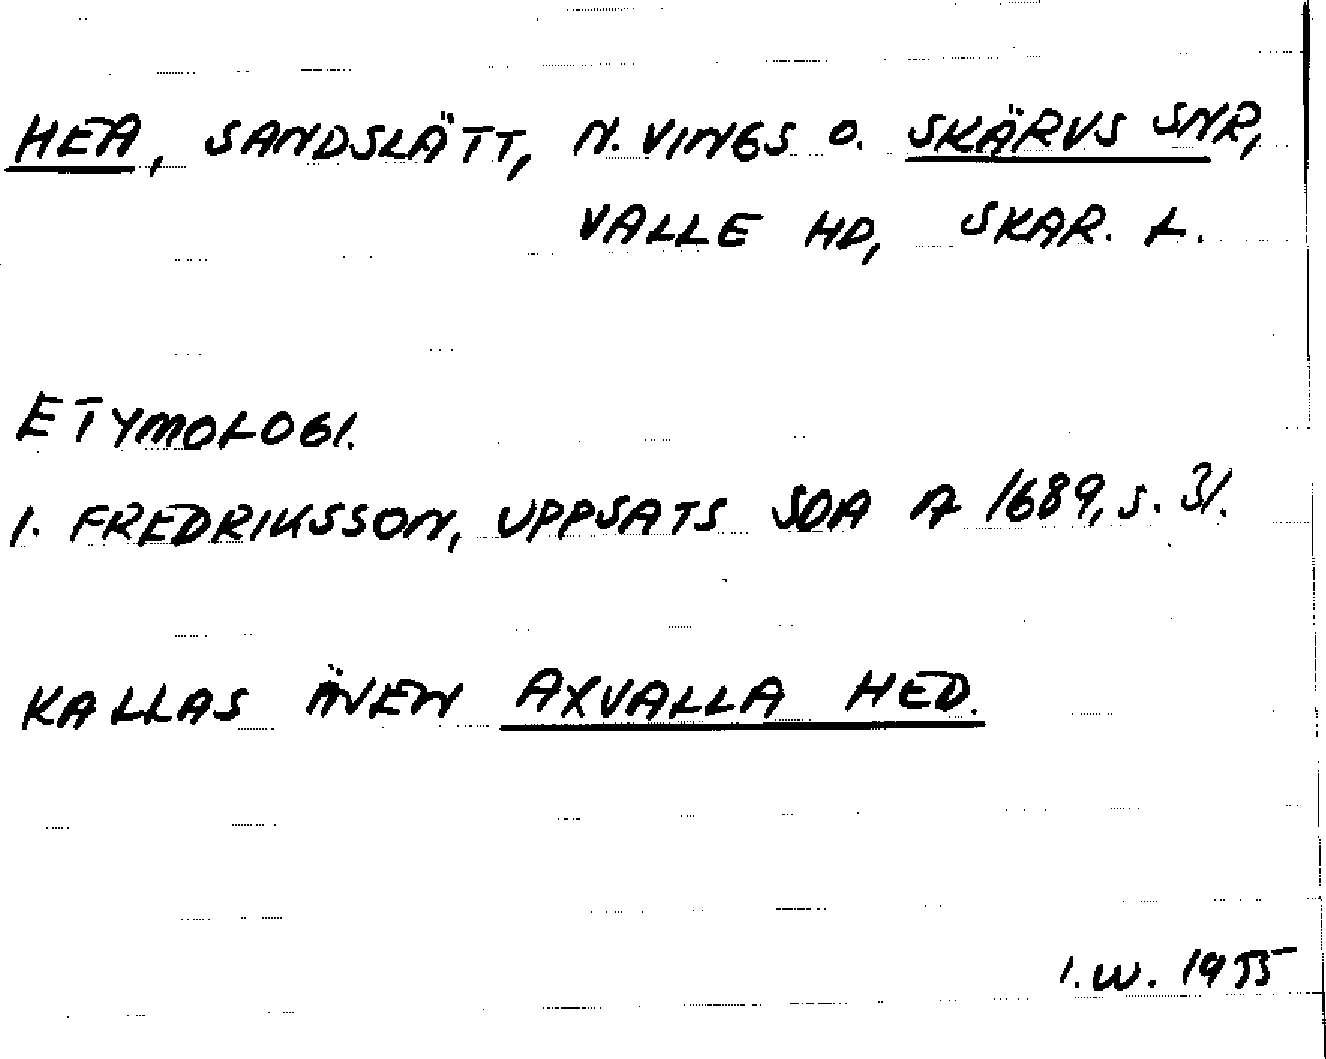 HEA, SANDSLÄTT, N. VINGS O. SKÄRVS SNR,
VALLE HD, SKAR. L.
ETYMOLOGI.
I. FREDRIKSSON, UPPSATS SOA A 1689, S. 31.
KALLAS ÄVEN AXVALLA HED.
I. W. 1955